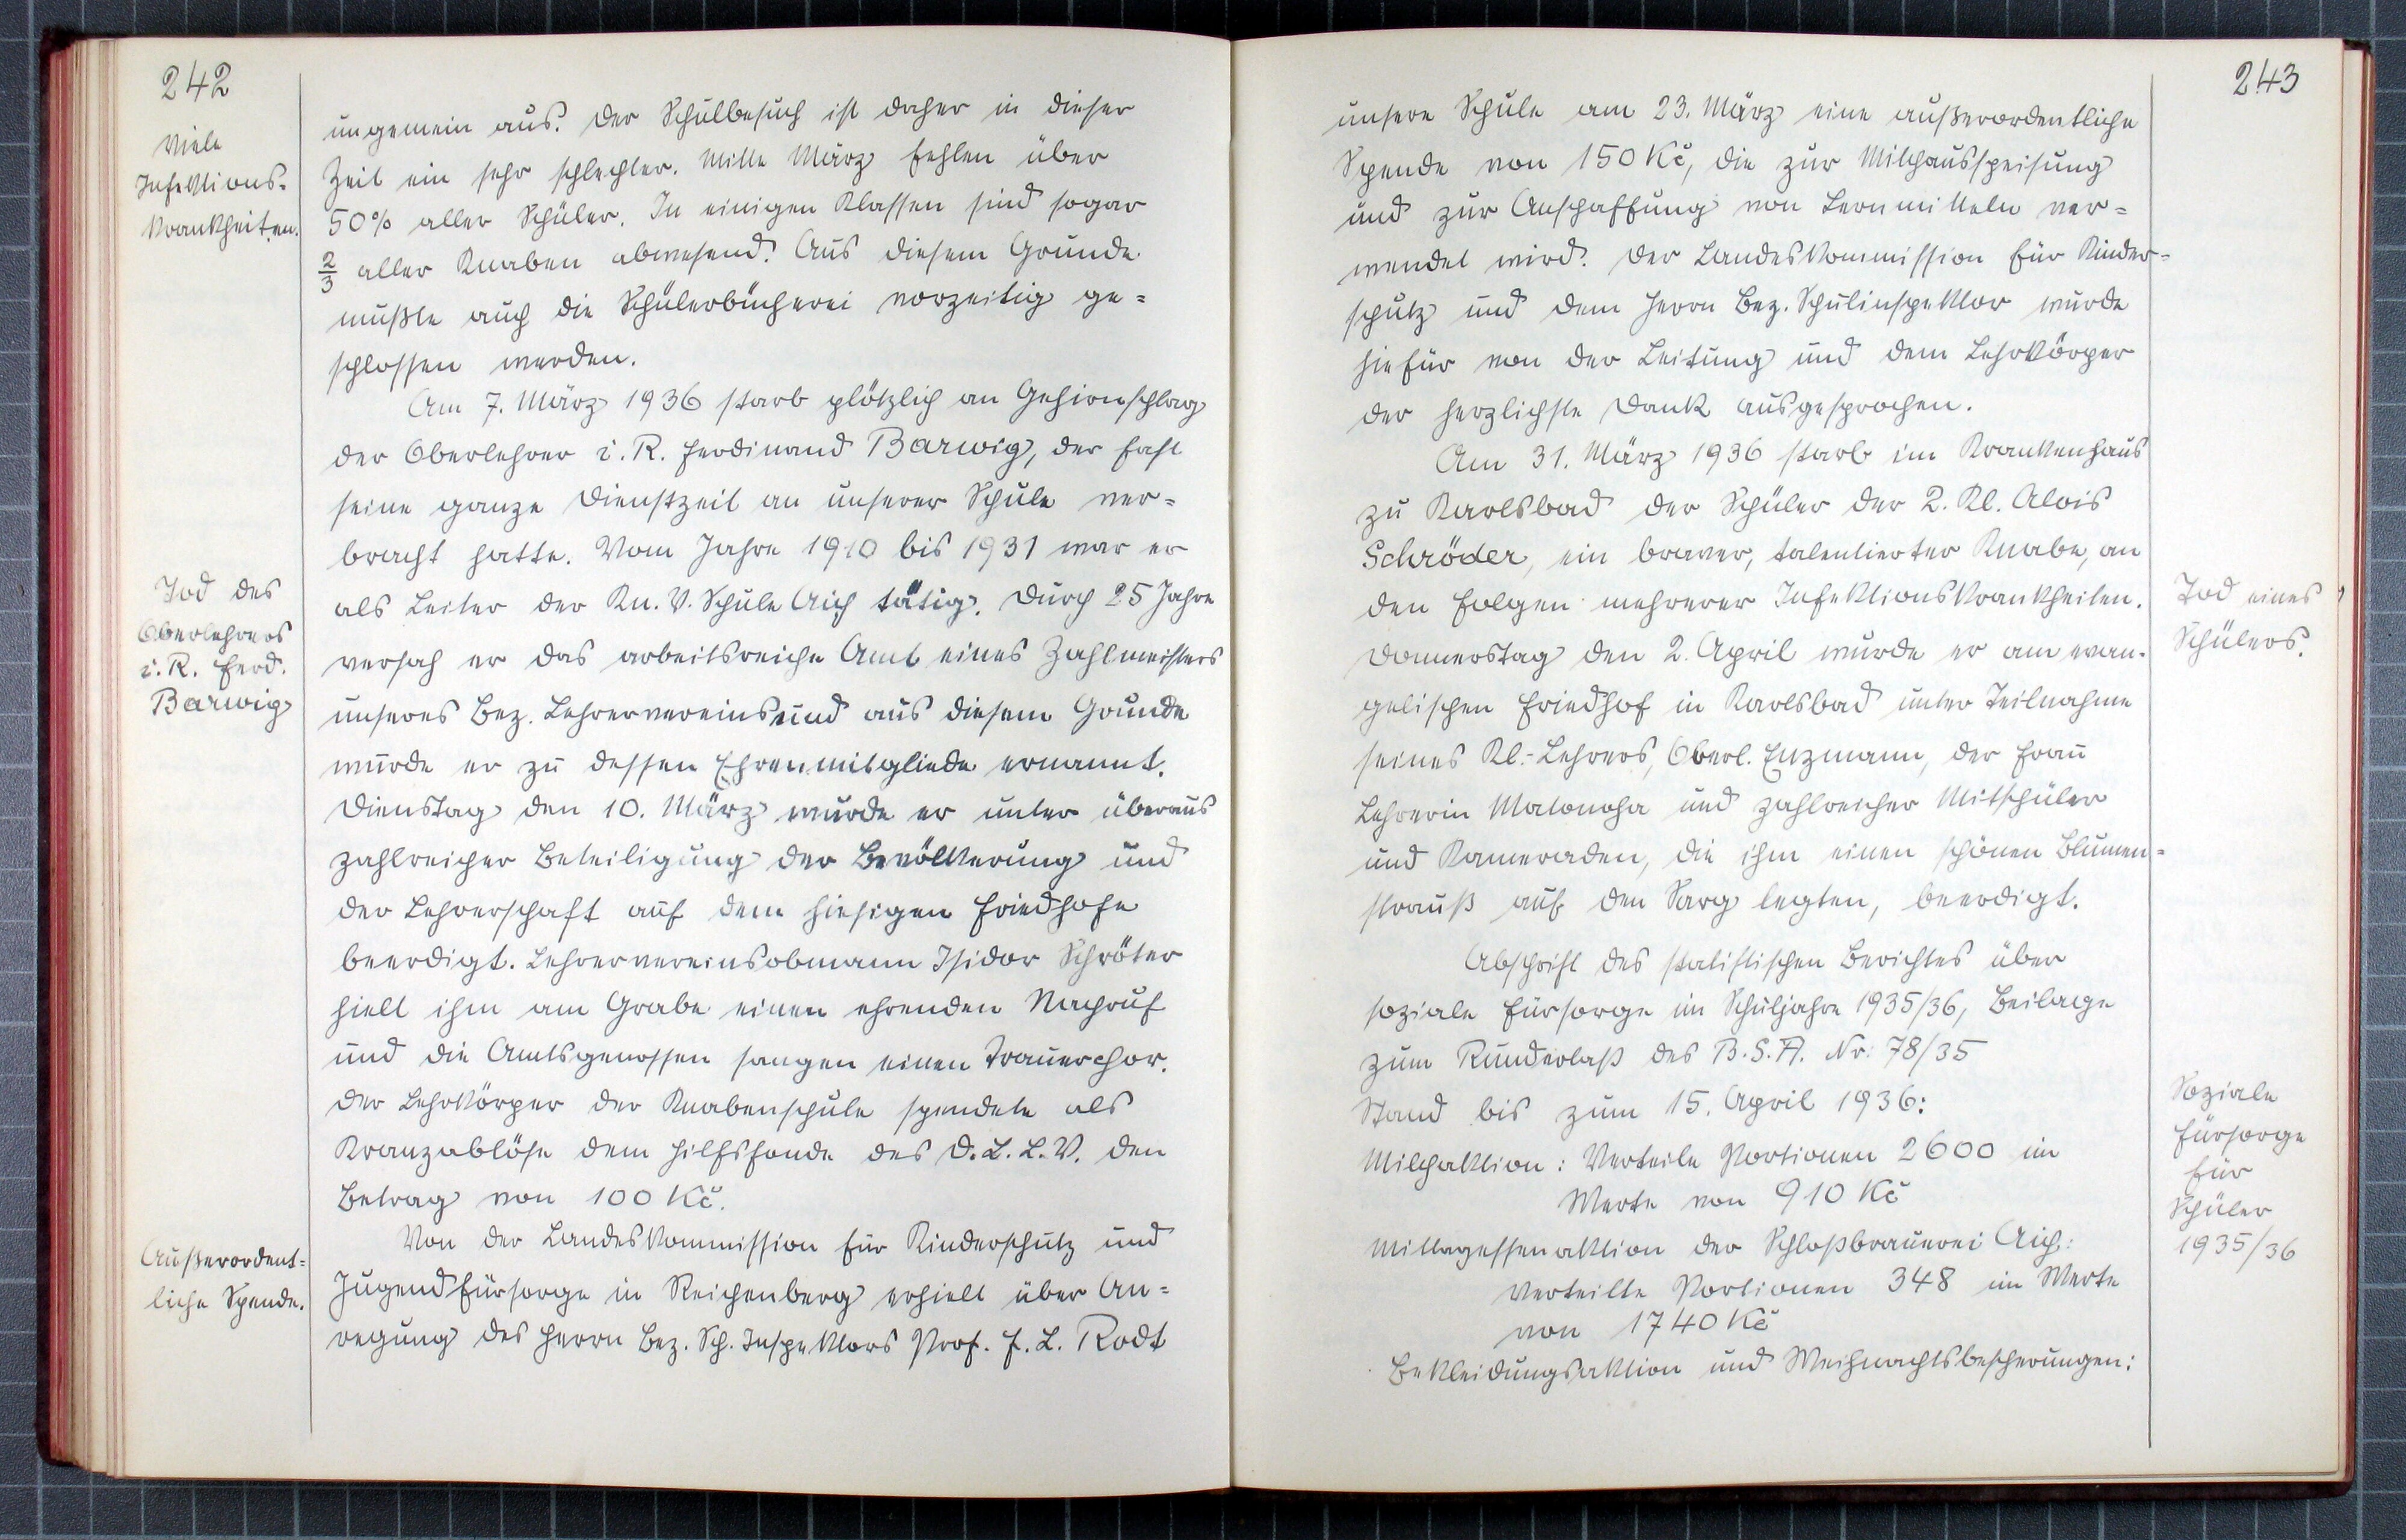 242
Viele
Infektions-
krankheiten.
ungemein aus. Der Schulbesuch ist daher in dieser
Zeit ein sehr schlechter. Mitte März fehlen über
50% aller Schüler. In einigen Klassen sind sogar
2/3 aller Knaben abwesend. Aus diesem Grunde
mußte auch die Schülerbücherei vorzeitig ge=
schlossen werden.
Am 7. März 1936 starb plötzlich an Gehirnschlag
der Oberlehrer i. R. Ferdinand Barwig, der fast
seine ganze Dienstzeit an unserer Schule ver=
bracht hatte. Vom Jahre 1910 bis 1931 war er
Tod des
Oberlehrers
i. R. Ferd.
Barwig
als Leiter der Kn. V. Schule Aich tätig. Durch 25 Jahre
versah er das arbeitsreiche Amt eines Zahlmeisters
unseres Bez. Lehrervereins und aus diesem Grunde
wurde er zu dessen Ehrenmitgliede ernannt.
Dienstag den 10. März wurde er unter überaus
zahlreicher Beteiligung der Bevölkerung und
der Lehrerschaft auf dem hiesigen Friedhofe
beerdigt. Lehrervereinsobmann Isidor Schröter
hielt ihm am Grabe einen ehrenden Nachruf
und die Amtsgenossen sangen einen Trauerchor.
Der Lehrkörper der Knabenschule spendete als
Kranzablöse dem Hilfsfonde des D. L. L. V. den
Betrag von 100 Kč.
Außerordent=
liche Spende.
Von der Landeskommission für Kinderschutz und
Jugendfürsorge in Reichenberg erhielt über An=
regung des Herrn Bez. Sch. Inspektors Prof. F. L. Rodt
243
unsere Schule am 23. März eine außerordentliche
Spende von 150 Kč, die zur Milchausspeisung
und zur Anschaffung von Lernmitteln ver=
wendet wird. Der Landeskommission für Kinder=
schutz und dem Herrn Bez. Schulinspektor wurde
hiefür von der Leitung und dem Lehrkörper
der herzlichste Dank ausgesprochen.
Am 31. März 1936 starb im Krankenhaus
zu Karlsbad der Schüler der 2. Kl. Alois
Schröder, ein braver, talentierter Knabe, an
den Folgen mehrerer Infektionskrankheiten.
Tod eines
Schülers.
Donnerstag den 2. April wurde er am evan-
gelischen Friedhof in Karlsbad unter Teilnahme
seines Kl.-Lehrers, Oberl. Enzmann, der Frau
Lehrerin Matoucha und zahlreicher Mitschüler
und Kameraden, die ihm einen schönen Blumen=
strauß auf den Sarg legten, beerdigt.
Abschrift des statistischen Berichtes über
soziale Fürsorge im Schuljahre 1935/36, Beilage
zum Runderlaß des B.S.A. Nr: 78/35
Stand bis zum 15. April 1936:
Soziale
Fürsorge
für
Schüler
1935/36
Milchaktion: Verteile Portionen 2600 im
Werte von 910 Kč
Mittagessenaktion der Schloßbrauerei Aich:
Verteilte Portionen 348 im Werte
von 1740 Kč
Bekleidungsaktion und Weihnachtsbescherungen: